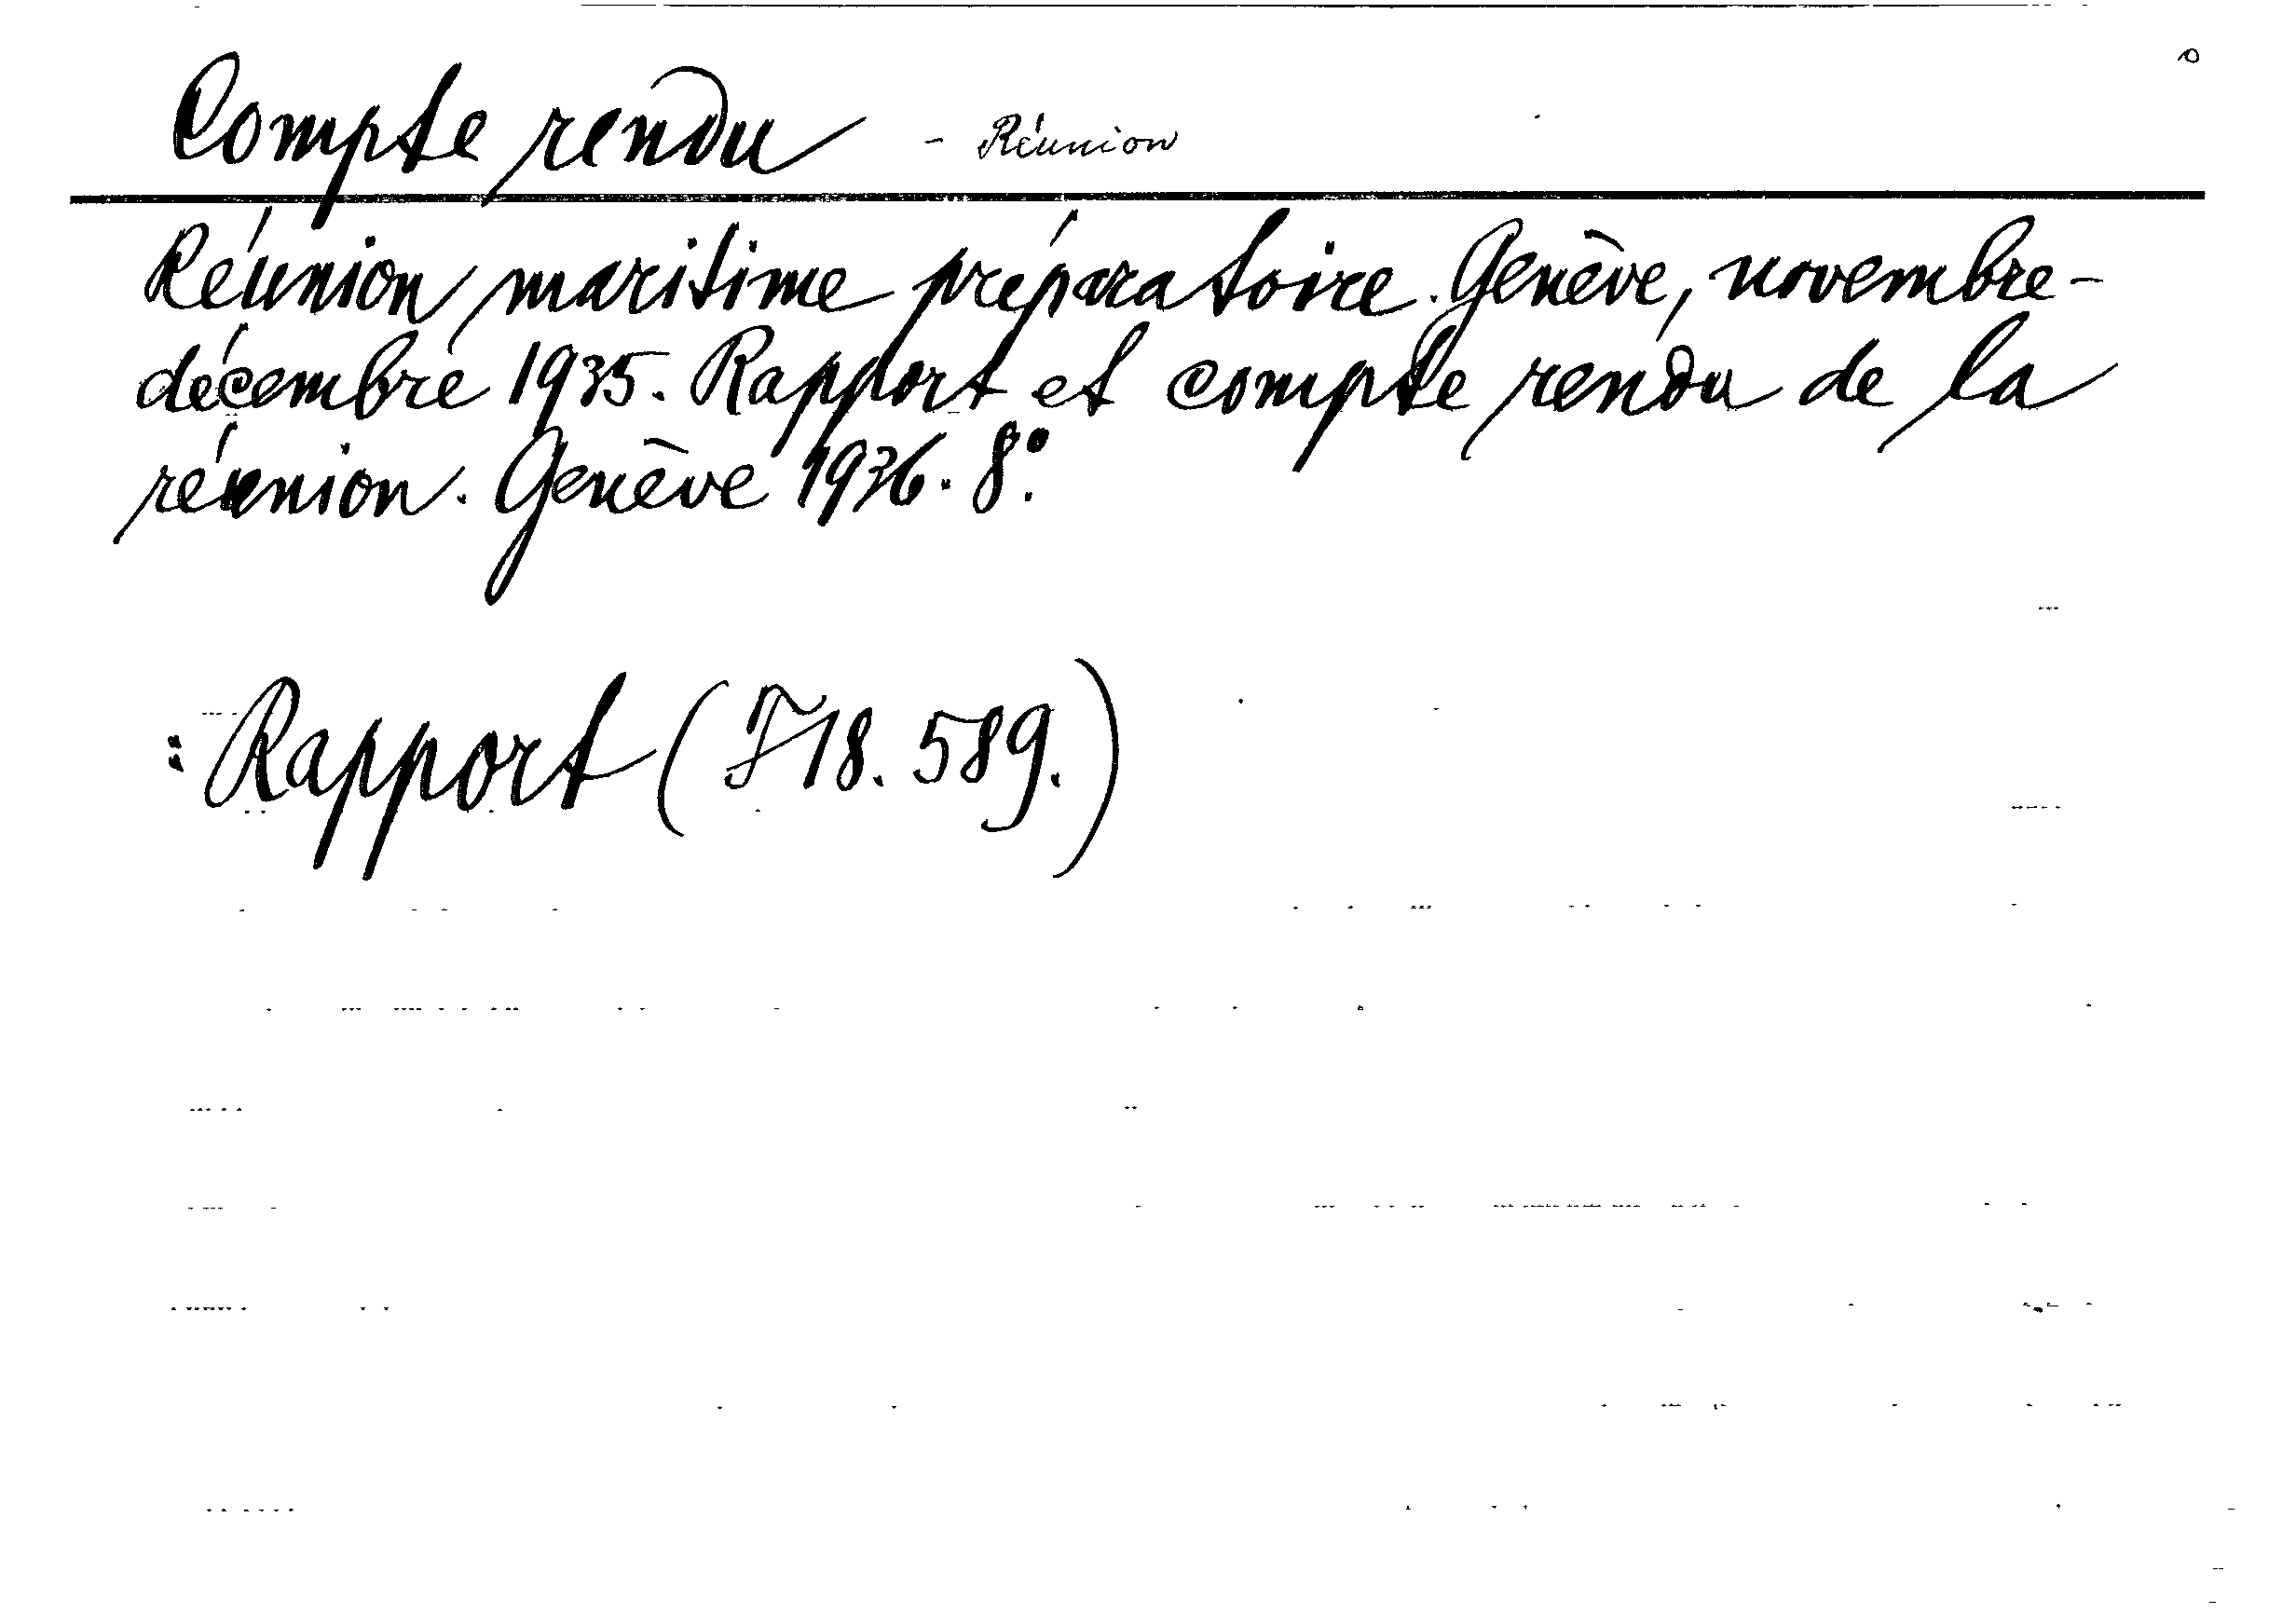 Compte rendu - Réunion
Réunion maritime préparatoire. Genève, novembre-
décembre 1935. Rapport et compte rendu de la
réunion. Genève 1936. 8°.
: Rapport (F18. 589.)